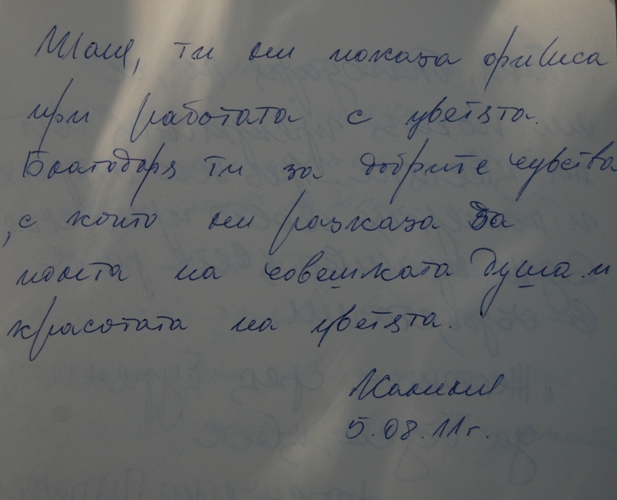 ти ни показа финеса
при работата с цветята.
Благодаря ти за добрите чувства
, с които ни разказа за
на човешката душа и
красотата на цветята.
5.08.11г.